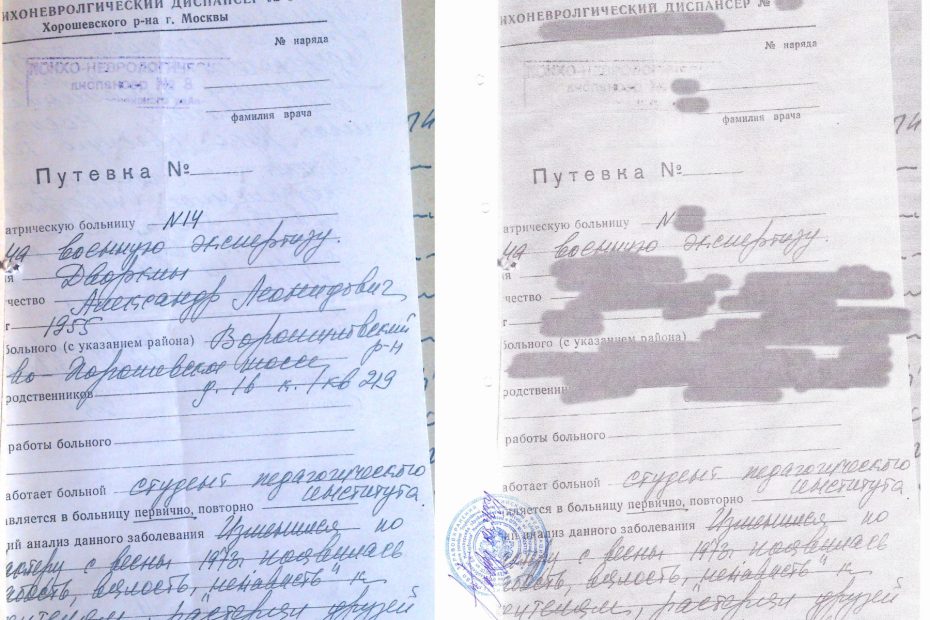 ИХОНЕВРОЛГИЧЕСКИЙ ДИСПАНСЕР №
Хорошевского р-на г. Москвы
№ наряда
ПСИХО-НЕВРОЛОГИЧЕСК
диспансер № 8
фамилия врача
Путевка №
атрическую больницу N 14
на военную экспертизу.
ия Дворкин
чество Александр Леонидович
г 1955
больного (с указанием района) Ворошиловский
р-н
Хорошевское шоссе
родственников д. 16 к. 1 кв 219
работы больного
аботает больной студент педагогического
института
авляется в больницу первично, повторно
ий анализ данного заболевания Изменился по
актеру с весны 1973г появилась
вялость, ненависть" к
растерял друзей
ИХОНЕВРОЛГИЧЕСКИЙ ДИСПАНСЕР №
№ наряда
фамилия врача
Путевка №
атрическую больницу N
на военную экспертизу.
я
чество
г
больного (с указанием района)
родственников
работы больного
аботает больной студент педагогического
института
авляется в больницу первично, повторно
ий анализ данного заболевания Изменился по
с весны 1973г появилась
вялость, ненависть" к
растерял друзей